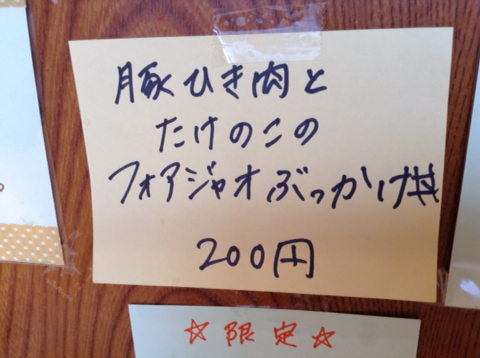 豚ひき肉と
たけのこの
フォアジャオぶっかけ丼
200円
☆限定☆